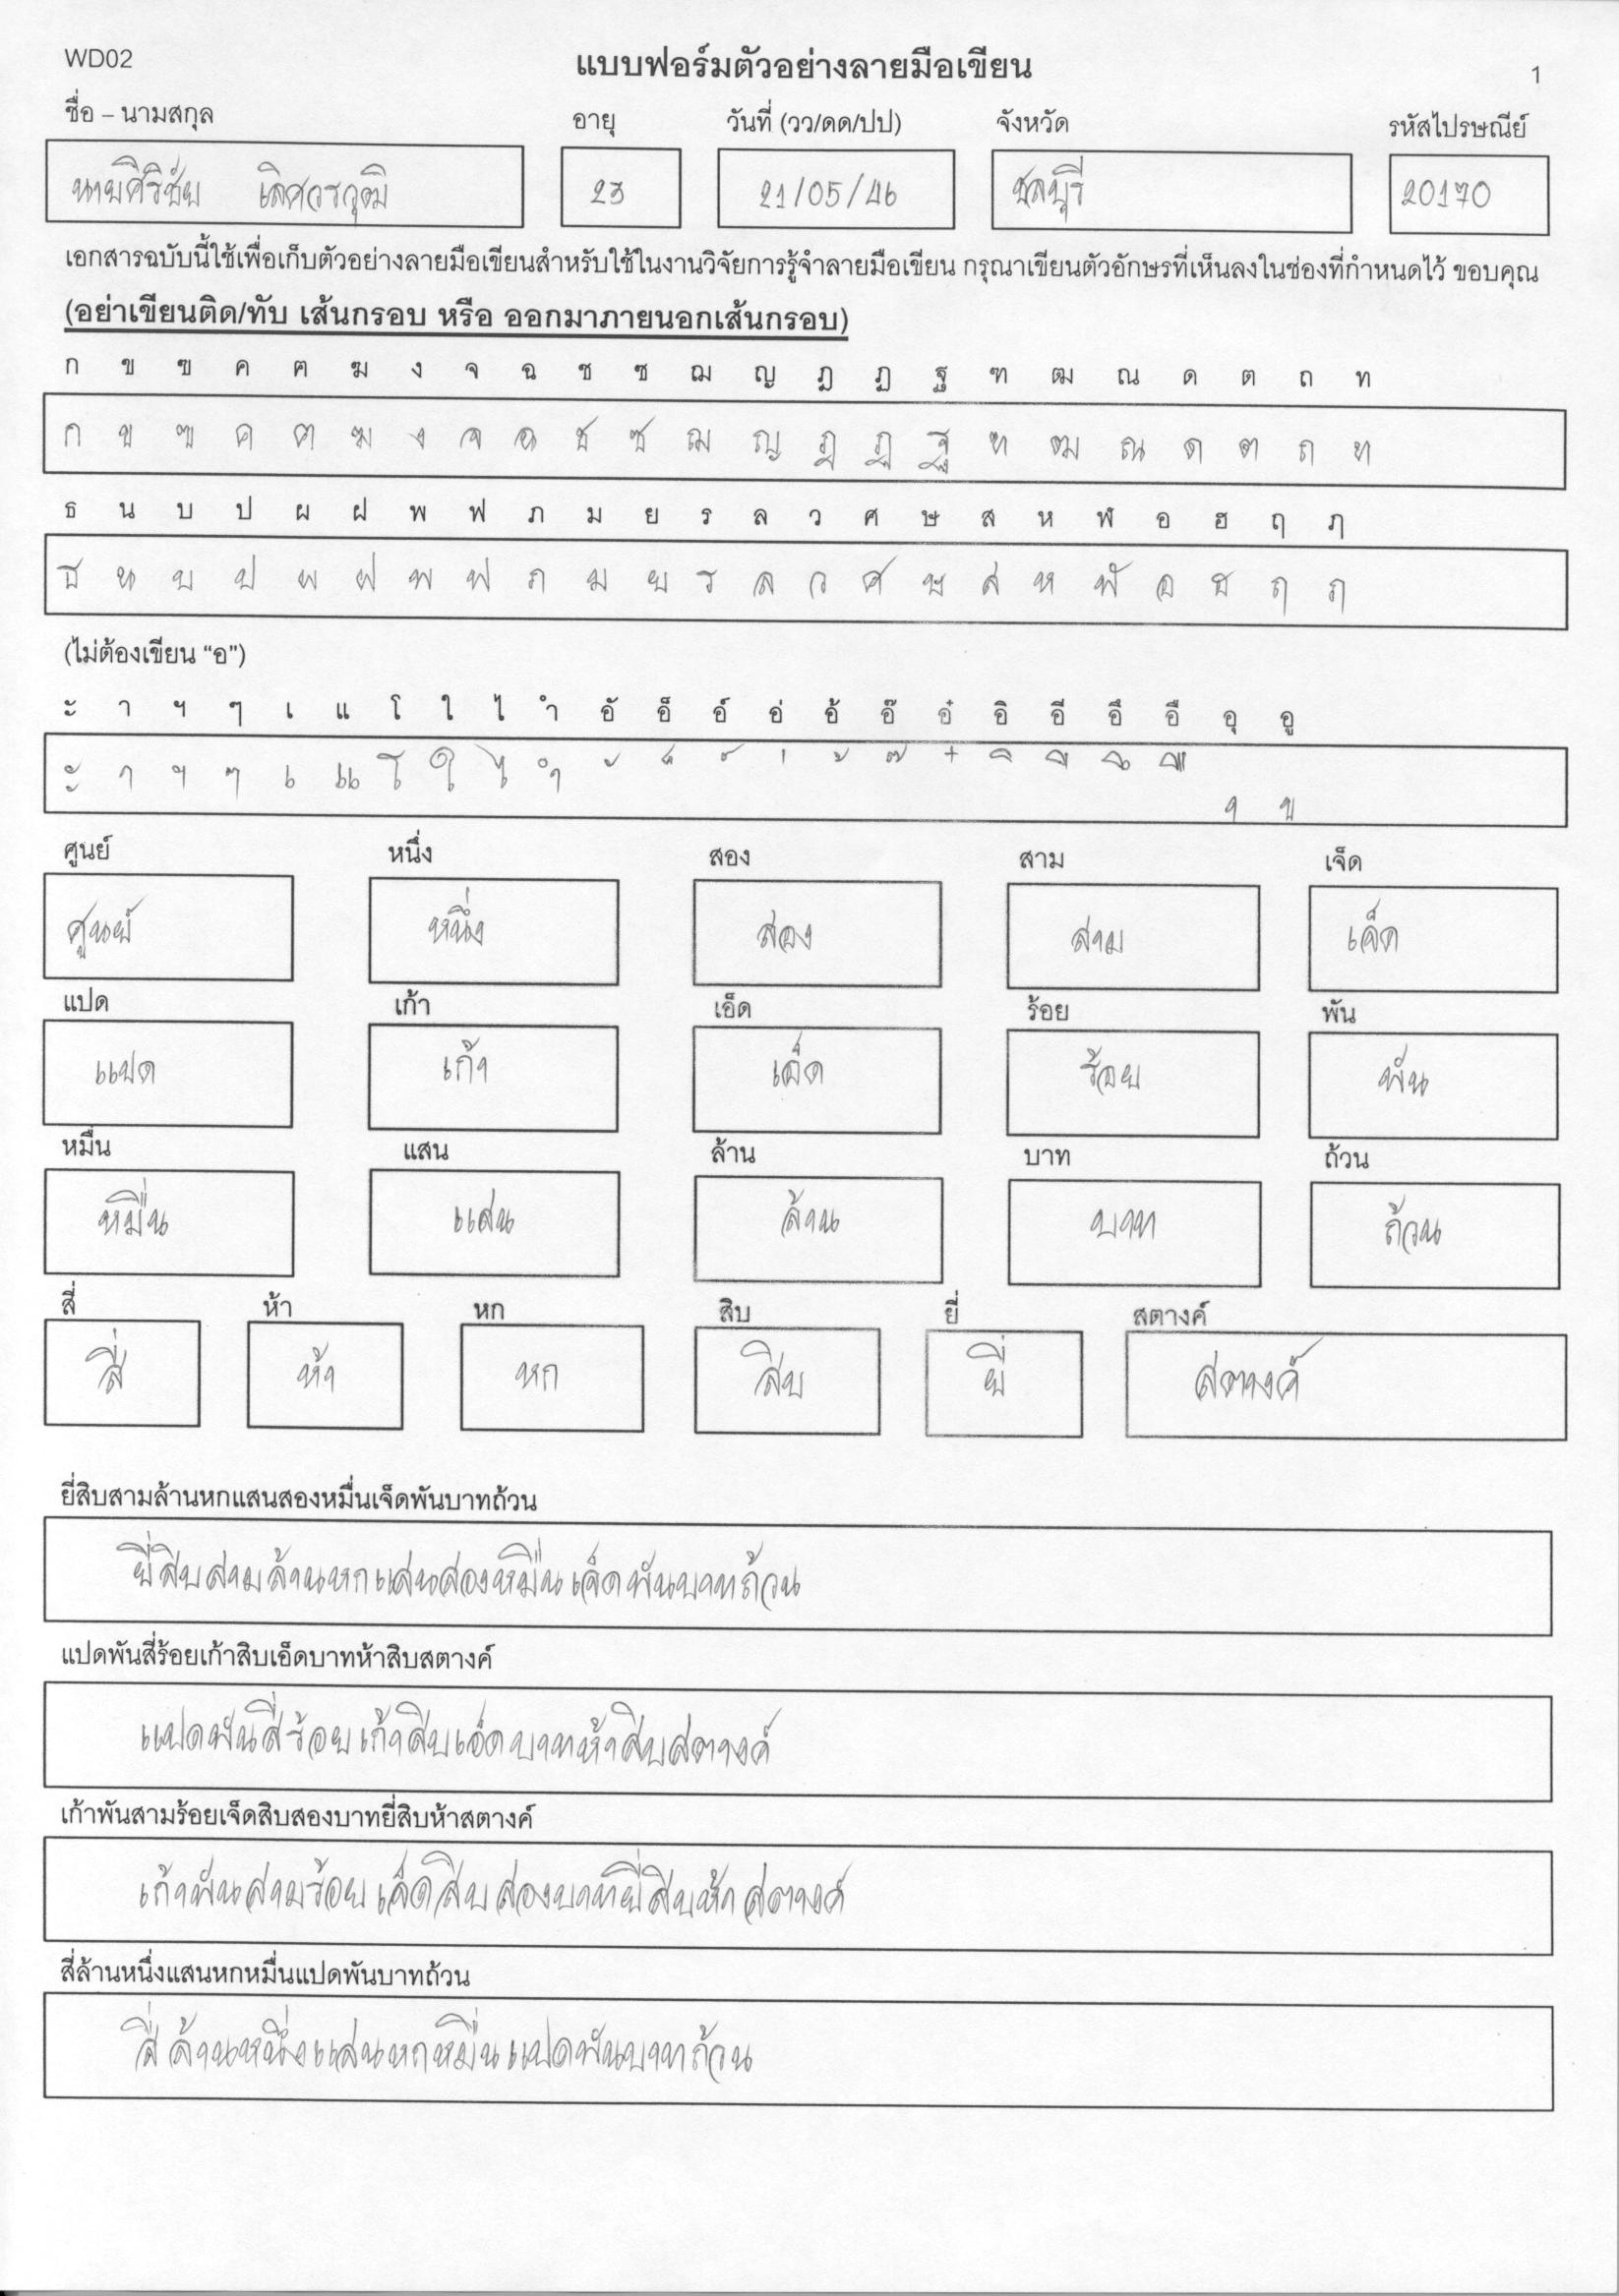 WD02 แบบฟอร์มตัวอย่างลายมือเขียน 1
ชื่อ – นามสกุล อายุ วันที่ (วว/ดด/ปป) จังหวัด รหัสไปรษณีย์
นายศิริชัย เลิศวรวุฒิ 23 21/05/46 ชลบุรี 20170
เอกสารฉบับนี้ใช้เพื่อเก็บตัวอย่างลายมือเขียนสำหรับใช้ในงานวิจัยการรู้จำลายมือเขียน กรุณาเขียนตัวอักษรที่เห็นลงในช่องที่กำหนดไว้ ขอบคุณ
(อย่าเขียนติด/ทับ เส้นกรอบ หรือ ออกมาภายนอกเส้นกรอบ)
ก ข ฃ ค ฅ ฆ ง จ ฉ ช ซ ฌ ญ ฎ ฏ ฐ ฑ ฒ ณ ด ต ถ ท
ก ข ฃ ค ฅ ฆ ง จ ฉ ช ซ ฌ ญ ฎ ฏ ฐ ฑ ฒ ณ ด ต ถ ท
ธ น บ ป ผ ฝ พ ฟ ภ ม ย ร ล ว ศ ษ ส ห ฬ อ ฮ ฤ ฦ
ธ น บ ป ผ ฝ พ ฟ ภ ม ย ร ล ว ศ ษ ส ห ฬ อ ฮ ฤ ฦ
(ไม่ต้องเขียน “อ”)
ะ า ฯ ๆ เ แ โ ใ ไ ำ อั อ็ อ์ อ่ อ้ อ๊ อ๋ อิ อี อึ อื อุ อู
ะ า ฯ ๆ เ แ โ ใ ไ ำ ั ็ ์ ่ ้ ๊ ๋ ิ ี ึ ื ุ ู
ศูนย์ หนึ่ง สอง สาม เจ็ด
ศูนย์ หนึ่ง สอง สาม เจ็ด
แปด เก้า เอ็ด ร้อย พัน
แปด เก้า เอ็ด ร้อย พัน
หมื่น แสน ล้าน บาท ถ้วน
หมื่น แสน ล้าน บาท ถ้วน
สี่ ห้า หก สิบ ยี่ สตางค์
สี่ ห้า หก สิบ ยี่ สตางค์
ยี่สิบสามล้านหกแสนสองหมื่นเจ็ดพันบาทถ้วน
ยี่สิบสามล้านหกแสนสองหมื่นเจ็ดพันบาทถ้วน
แปดพันสี่ร้อยเก้าสิบเอ็ดบาทห้าสิบสตางค์
แปดพันสี่ร้อยเก้าสิบเอ็ดบาทห้าสิบสตางค์
เก้าพันสามร้อยเจ็ดสิบสองบาทยี่สิบห้าสตางค์
เก้าพันสามร้อยเจ็ดสิบสองบาทยี่สิบห้าสตางค์
สี่ล้านหนึ่งแสนหกหมื่นแปดพันบาทถ้วน
สี่ล้านหนึ่งแสนหกหมื่นแปดพันบาทถ้วน